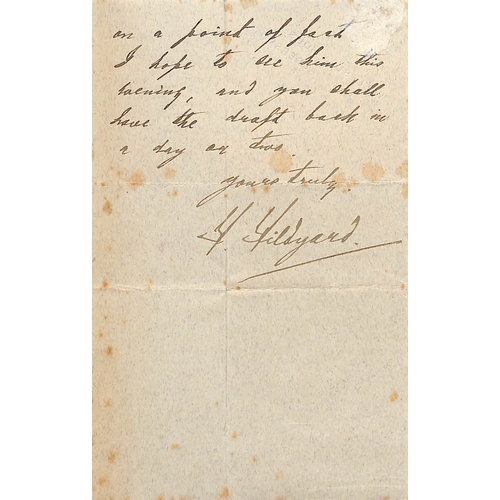 on a point of fact
I hope to see him this
evening, and you shall
have the draft back in
a day or two.
yours truly.
H. Hildyard.